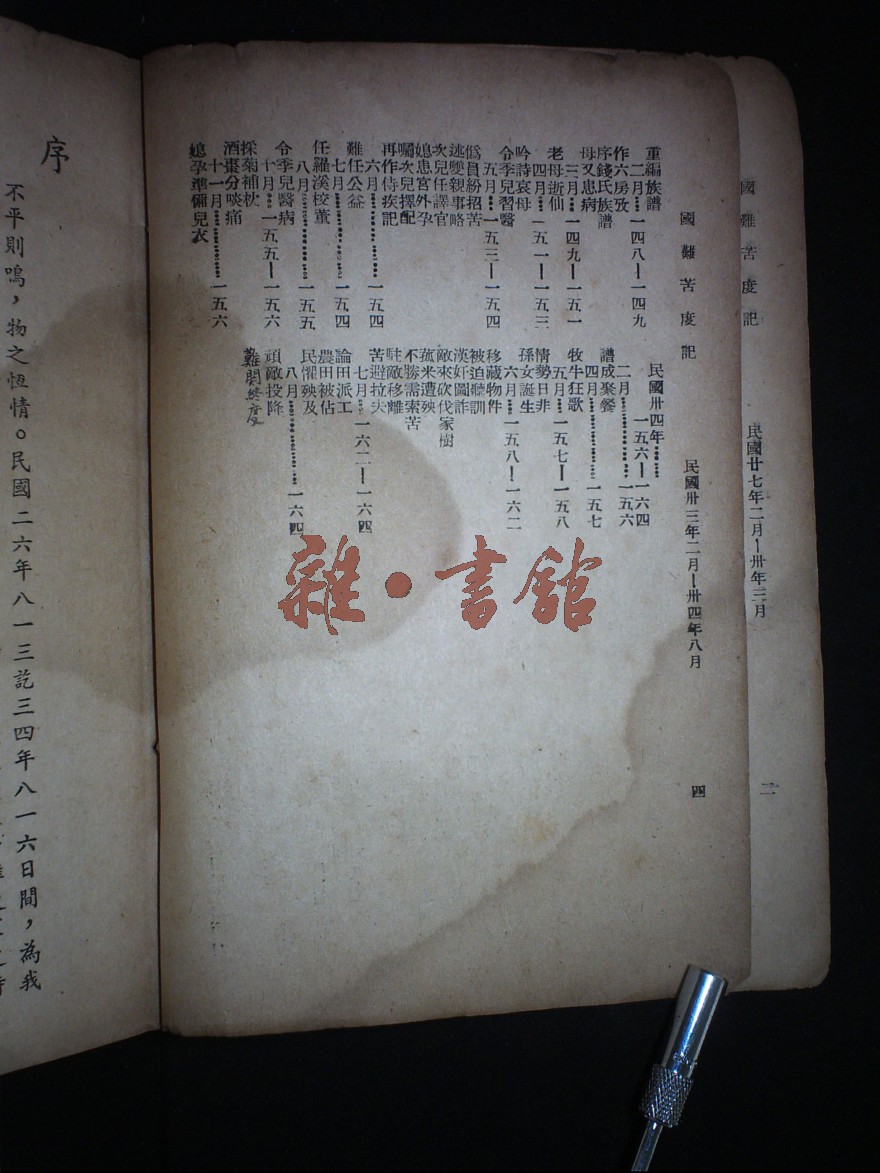 國難苦度記
民國廿七年二月—卅年三月
二
國難苦度記
民國卅三年二月—卅四年八月
四
重編族譜
二月……一四八—一四九
作六房攷
序錢氏族譜
母又患病
三月……一四九—一五一
老母逝仙
四月……一五一—一五三
吟詩哀母
令季兒習醫
五月……一五三—一五四
偽員紛招苦
述雙親事略
次兒任譯官
媳患宮外孕
囑次兒擇配
再作侍疾記
六月……一五四
難任公益
七月……一五四
任羅溪校董
八月……一五五
令季兒醫病
十月……一五五—一五六
採菊補枕
酒棗分啖痛
十一月……一五六
媳孕準備兒衣
民國卅四年……
一五六—一六四
二月……一五六
譜成聚餐
四月……一五七
牧牛狂歌
五月……一五七—一五八
情勢日非
孫女誕生
六月……一五八—一六二
移藏物件
被迫聽訓
漢奸圖詐
敵來砍伐家樹
蔬米遭殃
不勝需索苦
駐敵移離
苦避拉夫
七月……一六二—一六四
論田派工
農田被佔
民懼殃及
八月……一六四
頑敵投降
難關終度
雜·書館
序
不平則鳴，物之恆情。民國二六年八一三訖三四年八一六日間，為我